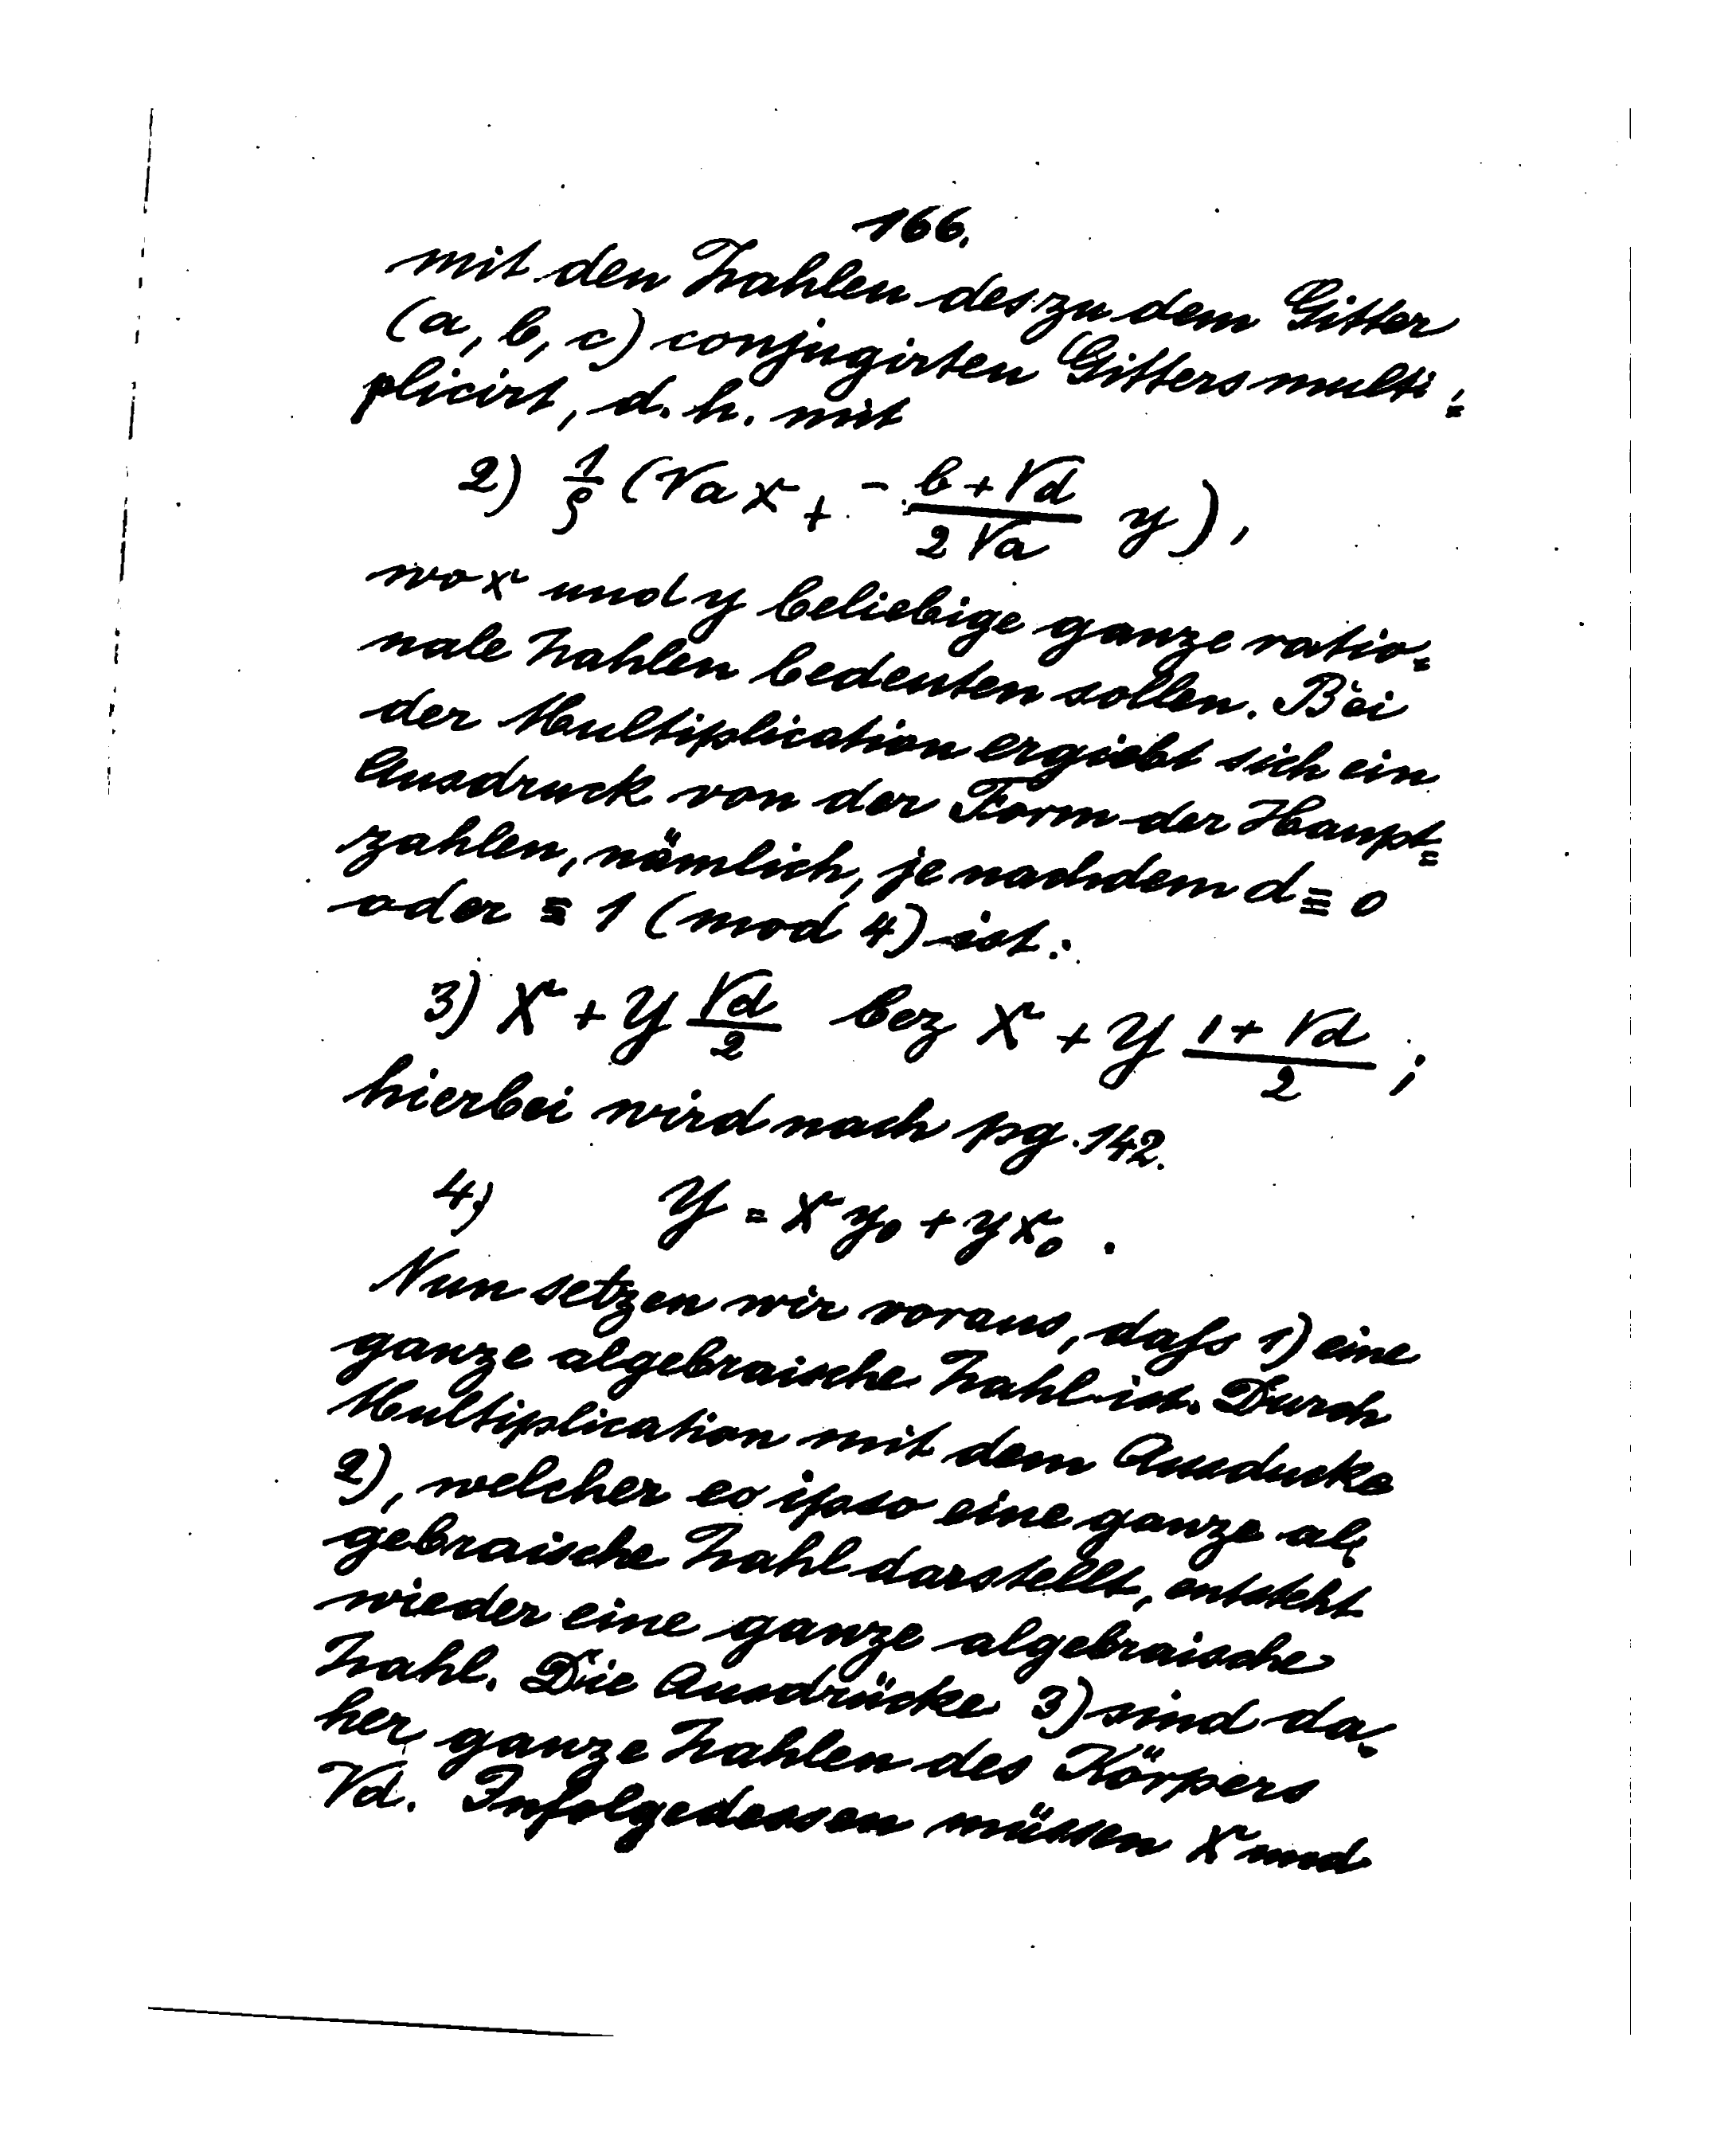 166.
mit den Zahlen des zu dem Gitter
(a, b, c) conjugirten Gitters multi=
plicirt, d. h. mit
2) 1/ρ (√a x + -b+√d / 2√a y),
wo x und y beliebige ganze ratio=
nale Zahlen bedeuten sollen. Bei
der Multiplication ergiebt sich ein
Ausdruck von der Form der Haupt=
zahlen, nämlich, je nachdem d ≡ 0
oder ≡ 1 (mod 4) ist:
3) X + Y √d/2 bez X + Y 1+√d / 2 ;
hierbei wird nach pg. 142.
4) Y = x y₀ + y x₀ .
Nun setzen wir voraus, dafs 1) eine
ganze algebraische Zahl ist. Durch
Multiplication mit dem Ausducke
2), welcher eo ipso eine ganze al=
gebraische Zahl darstellt, entsteht
wieder eine ganze algebraische
Zahl. Die Ausdrücke 3) sind da=
her ganze Zahlen des Körpers
√d. Infolgedessen müssen X und